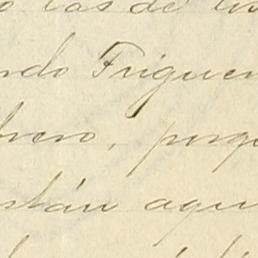 o las de
ndo Friguer
brero, porq
stán aqu